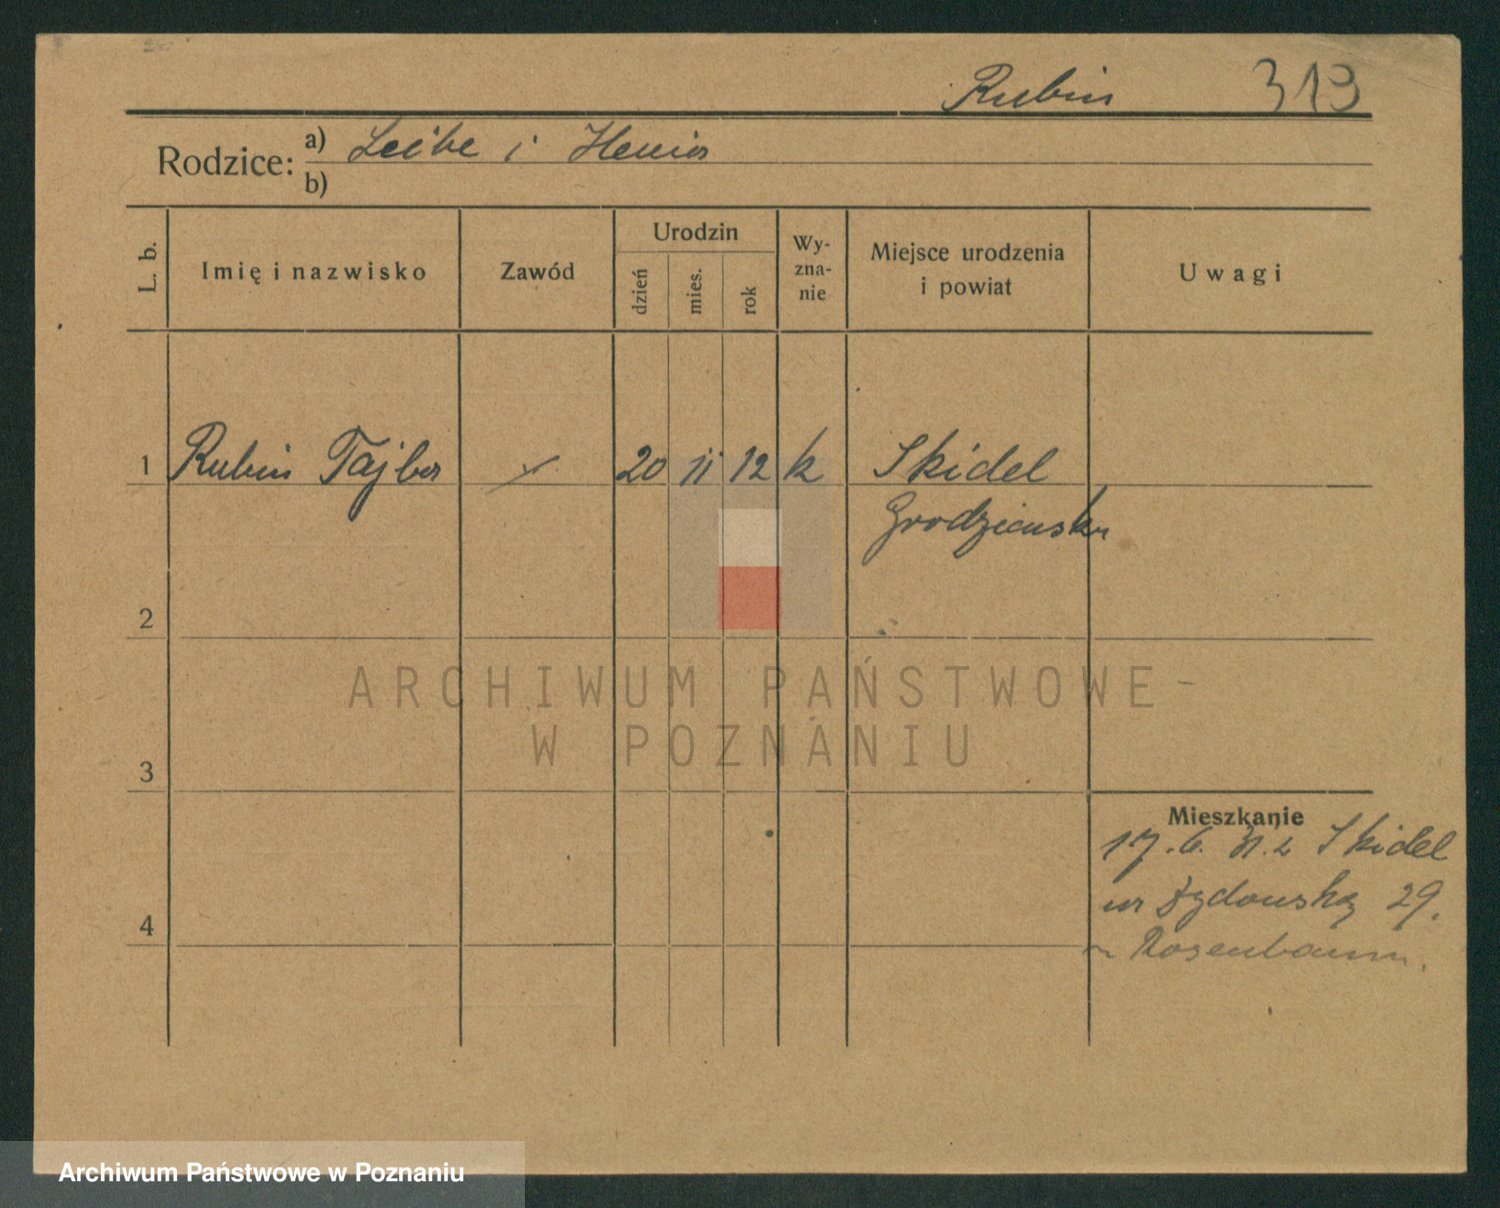 Rubin 319
Rodzice: a) Leibe i Henia
b)
L. b. Imię i nazwisko Zawód Urodzin dzień mies. rok Wy-zna-nie Miejsce urodzenia i powiat Uwagi
1 Rubin Tajba 20 11 12 k Skidel
Grodzieński
2
ARCHIWUM PAŃSTWOWE
W POZNANIU
3
Mieszkanie
17.6. 31. z Skidel
ur Żydowska 29.
4
Rosenbaum.
Archiwum Państwowe w Poznaniu